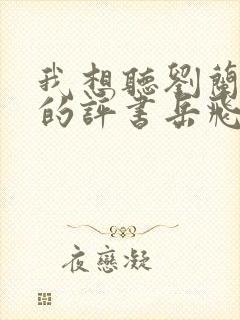 我想聽劉蘭
的評書岳飛
夜戀凝